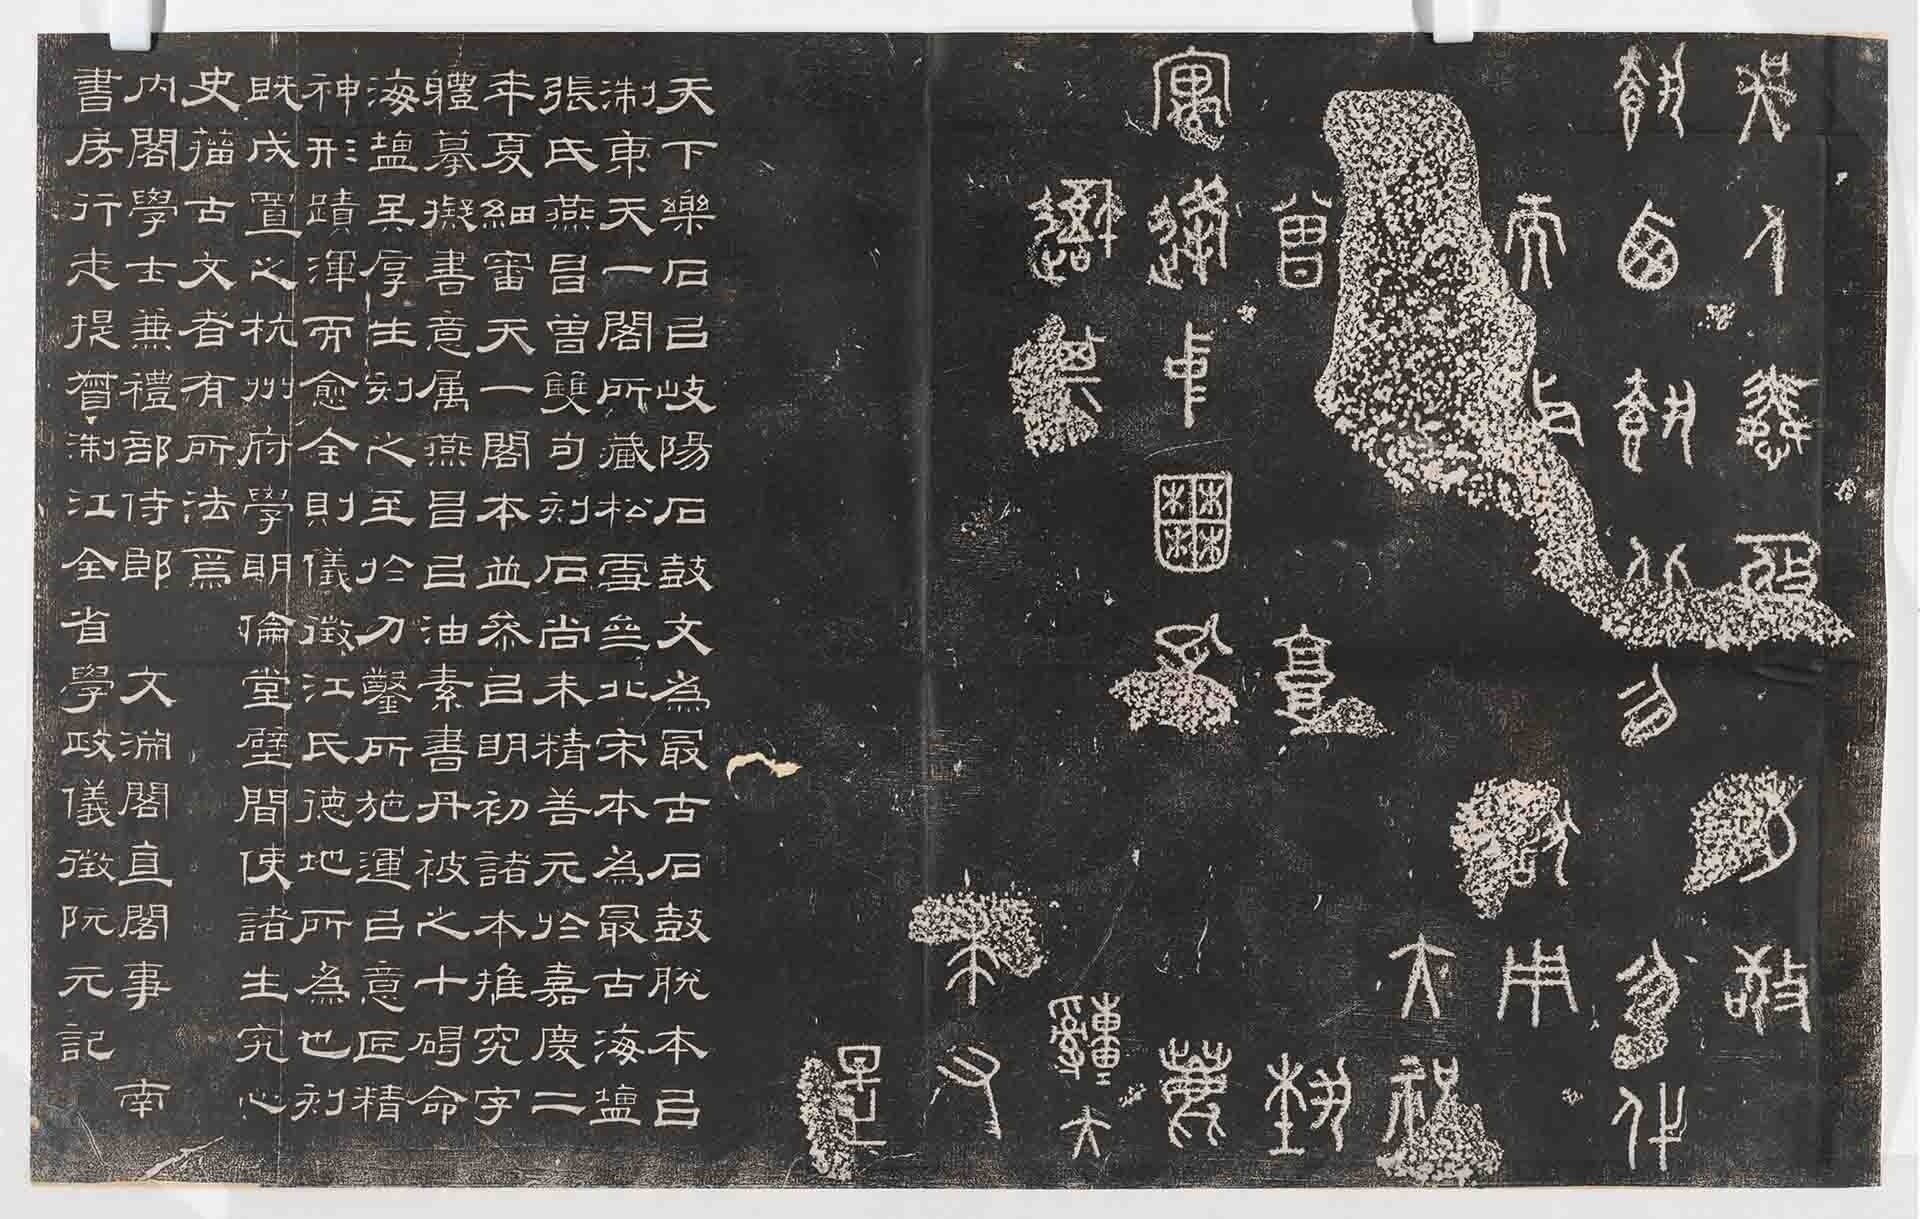 吳人憐亟敬
載西載北勿勿代
而出用
大祝
曾
寓逢中囿孔
其緟大
求又
是
天下樂石㠯岐陽石鼓文為最古石鼓脫本㠯
淛東天一閣所藏松雪齋北宋本為最古海鹽
張氏燕昌曾雙句刻石尚未精善元於嘉慶二
年夏細審天一閣本並參㠯明初諸本推究字
體摹擬書意属燕昌㠯油素書丹被之十碣命
海鹽吳厚生刻之至於刀鑿所施運㠯意匠精
神形蹟渾而愈全則儀徵江氏德地所為也刻
既成置之杭州府學明倫堂壁間使諸生究心
史籀古文者有所法焉
內閣學士兼禮部侍郎 文淵閣直閣事 南
書房行走提督淛江全省學政儀徵阮元記